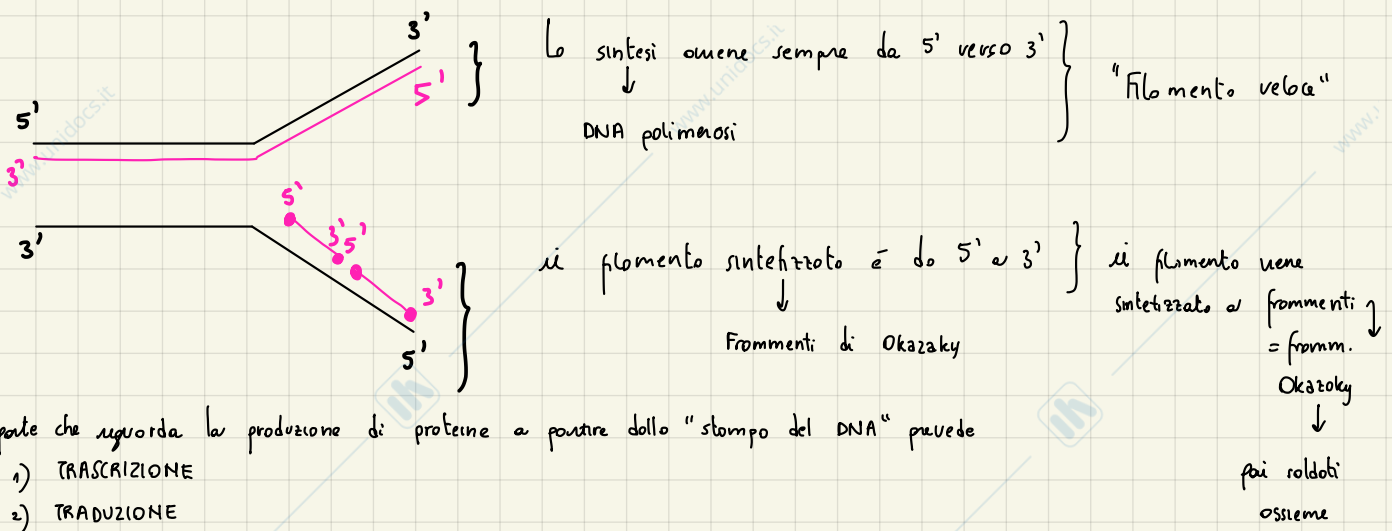 3'
5'
5'
3'
La sintesi avviene sempre da 5' verso 3'
DNA polimerasi
"Filamento veloce"
3'
5'
3' 5'
3'
5'
il filamento sintetizzato è da 5' a 3'
Frammenti di Okazaky
il filamento viene
sintetizzato a frammenti
= framm.
Okazaky
poi saldati
assieme
parte che riguarda la produzione di proteine a partire dallo "stampo del DNA" prevede
1) TRASCRIZIONE
2) TRADUZIONE
www.unidocs.it
www.unidocs.it
www.